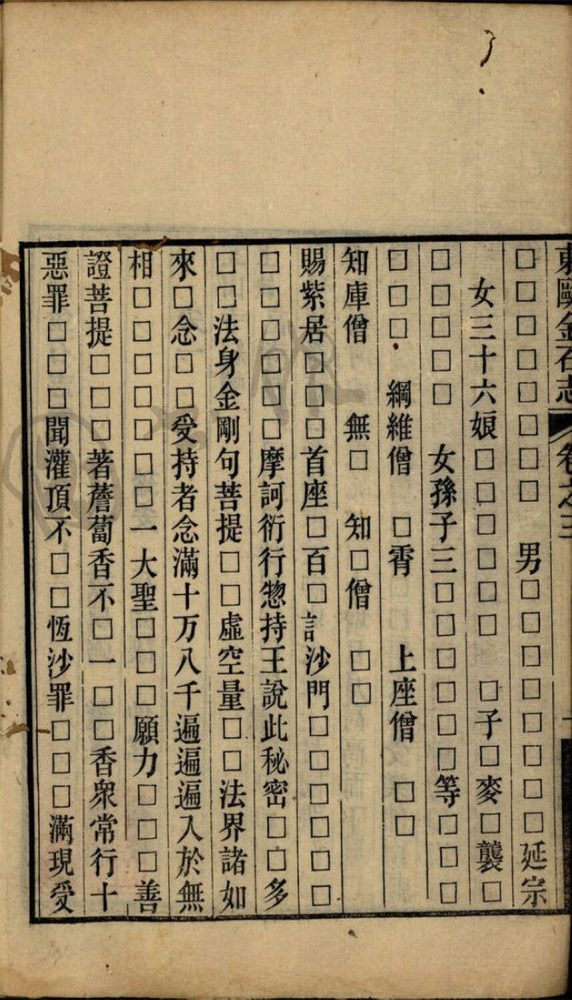 東甌金石志 卷之三
□□□□□□□ 男□□□□□□□延宗
女三十六娘□□□□□ □子□麥□襲□
□□□□□ 女孫子三□□□□□等□□□
□□□ 綱維僧 □霄 上座僧 □□
知庫僧 無□ 知□僧 □□
賜紫居□□□首座□百□訁沙門□□□□□□
□□□□□摩訶衍行惣持王說此秘密□□多
□□法身金剛句菩提□□虛空量□□法界諸如
來□念□□受持者念滿十万八千遍遍遍入於無
相□□□□□□一大聖□□□願力□□□善
證菩提□□□著薝蔔香不□一□□香衆常行十
惡罪□□□聞灌頂不□□恆沙罪□□□滿現受